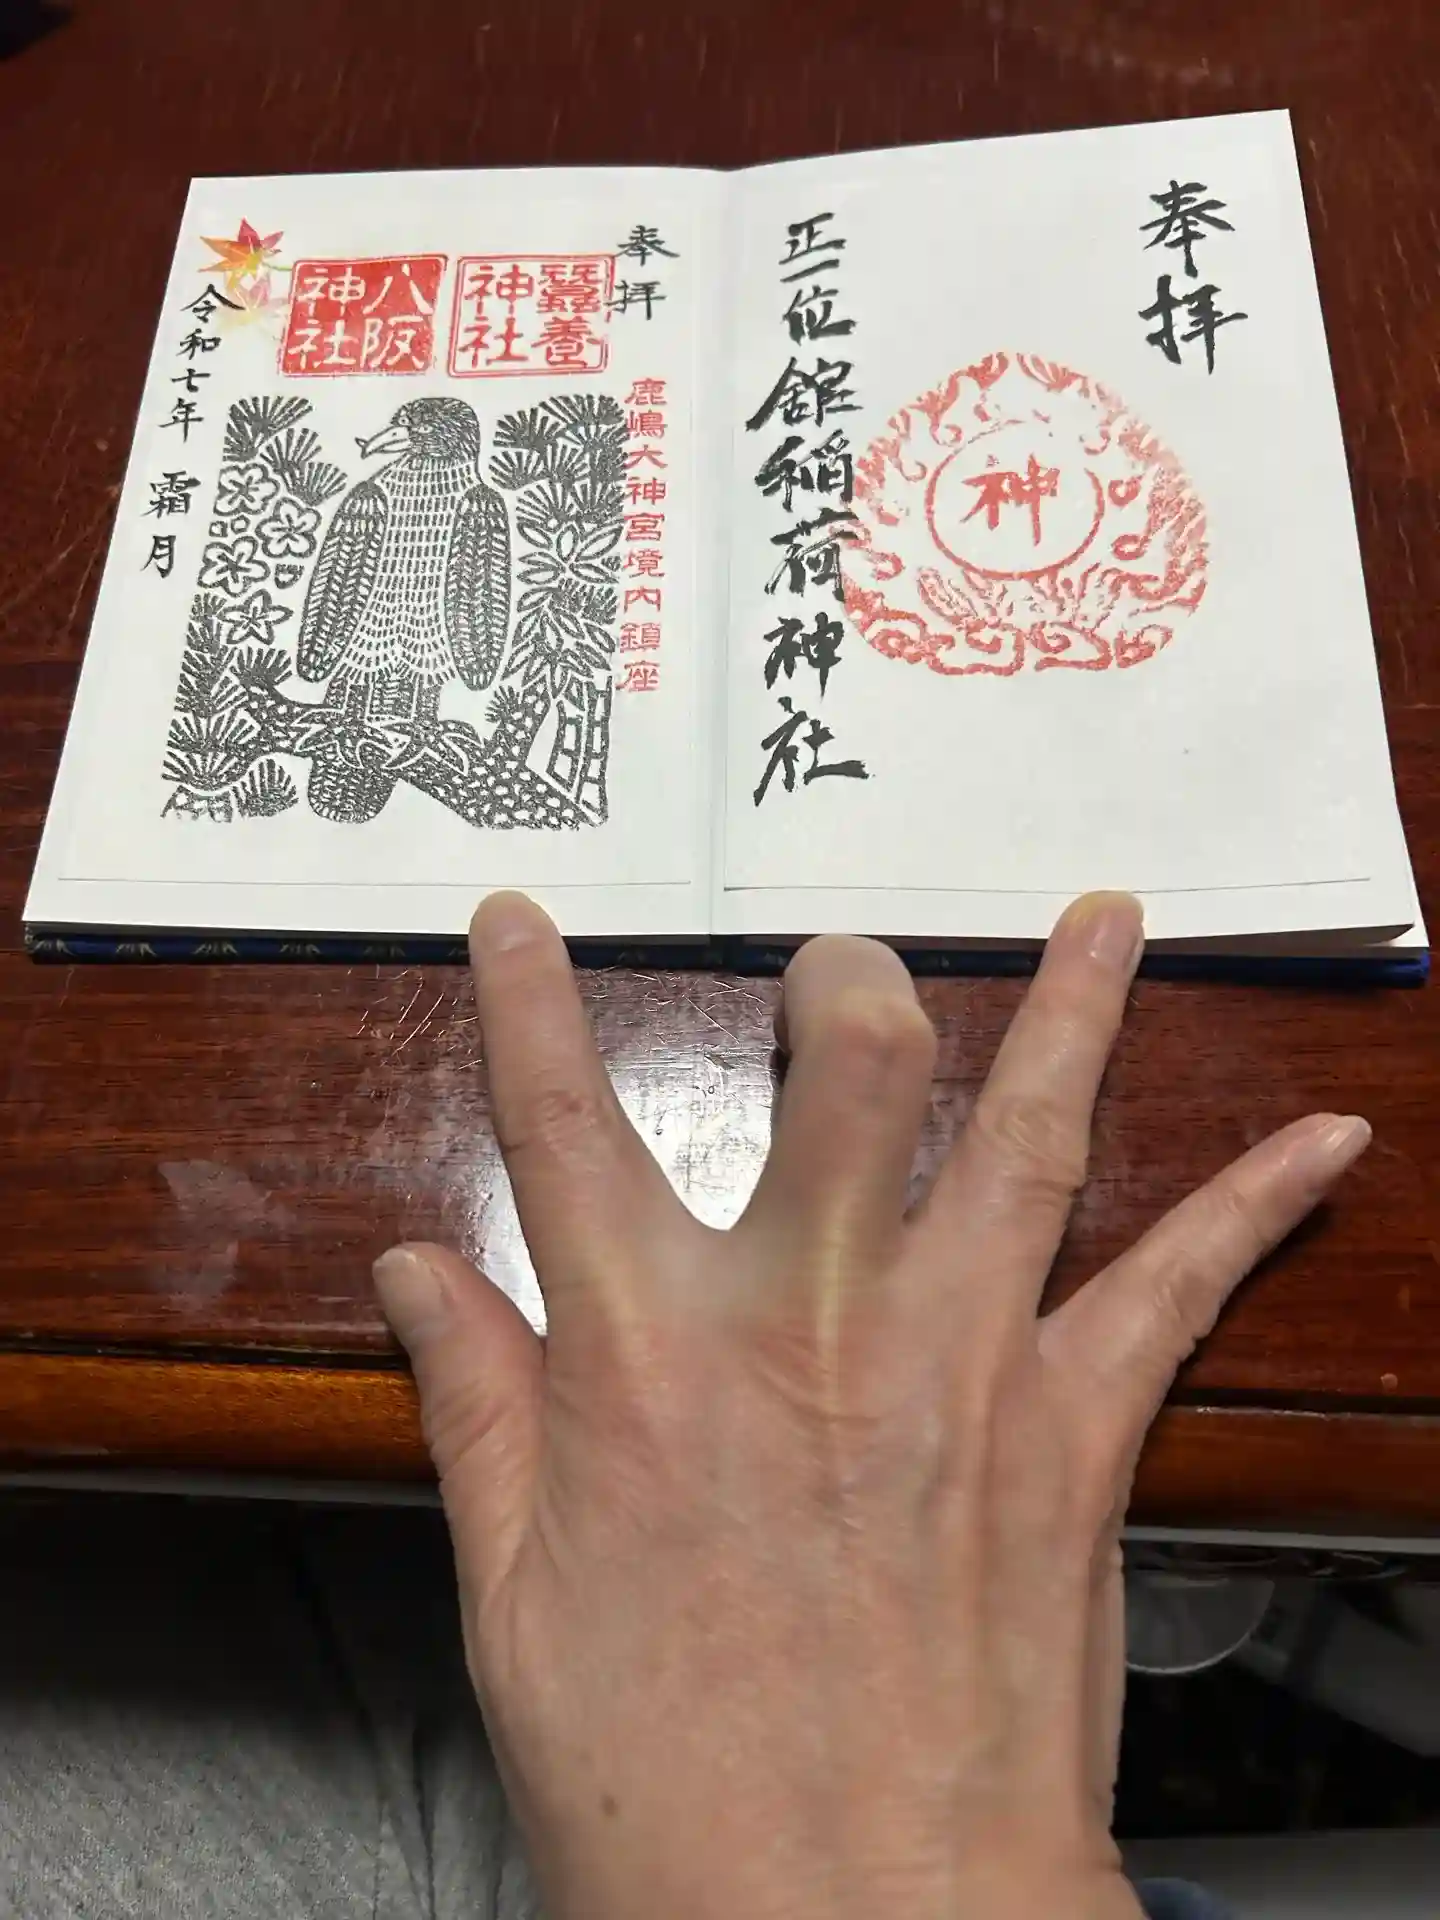 奉拝
神
正一位舘稲荷神社
奉拝
蠶養神社
八阪神社
鹿嶋大神宮境内鎮座
令和七年 霜月